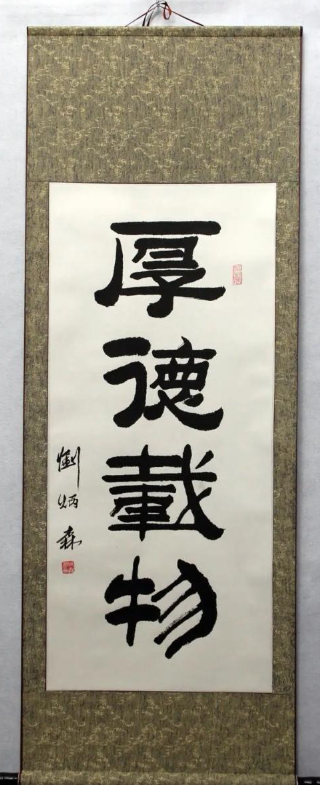 厚德載物
劉炳森